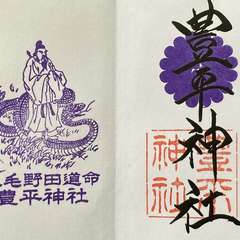 上毛野田道命
豊平神社
豊平神社
豊平
神社